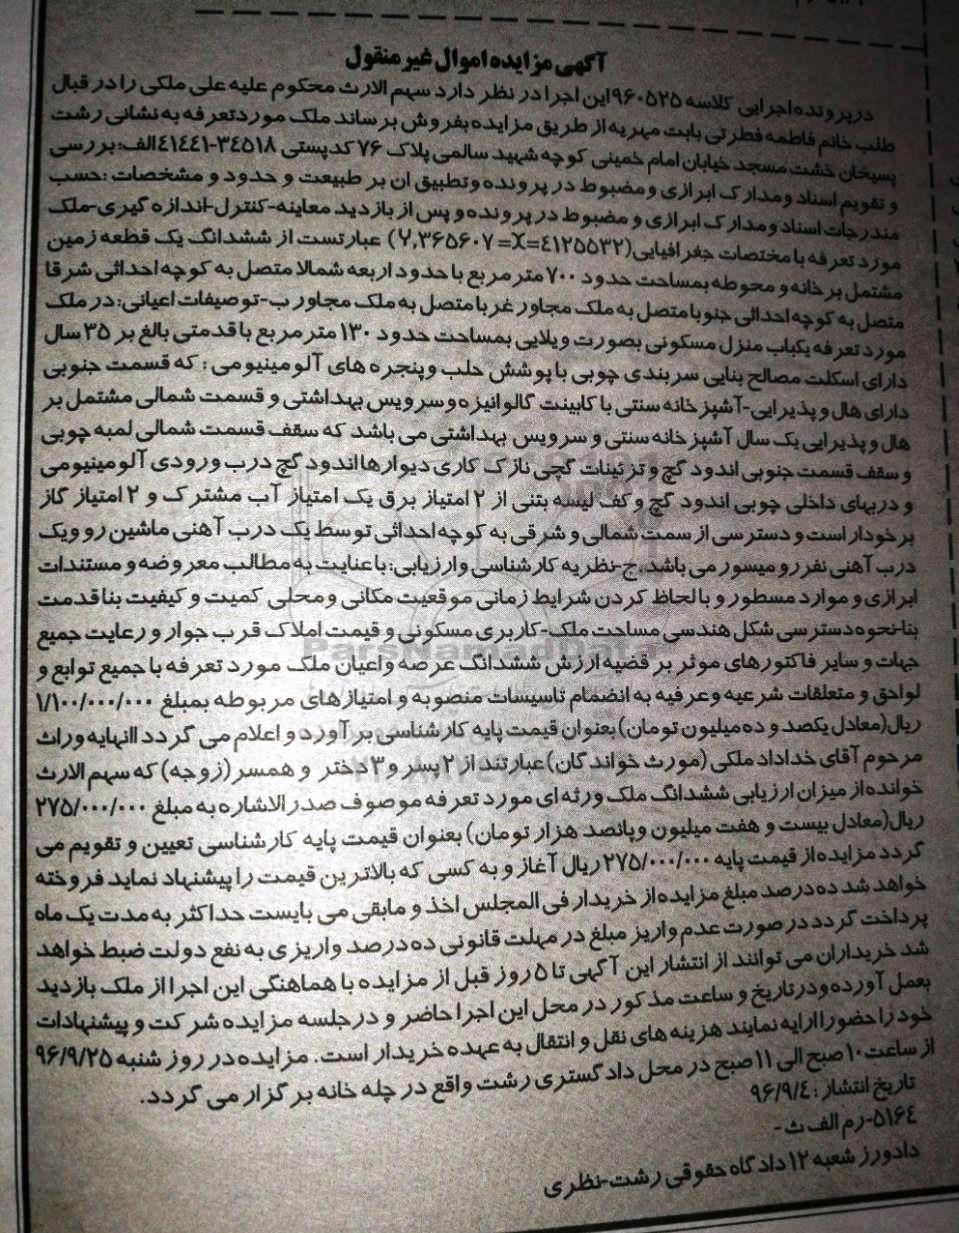 آگهی مزایده اموال غیر منقول
در پرونده اجرایی کلاسه ۹۶۰۵۲۵ این اجرا در نظر دارد سهم الارث محکوم علیه علی ملکی را در قبال
طلب خانم فاطمه فطرتی بابت مهریه از طریق مزایده بفروش برساند ملک مورد تعرفه به نشانی رشت
پسیخان خشت مسجد خیابان امام خمینی کوچه شهید سالمی پلاک ۷۶ کدپستی ۳۴۵۱۸-۴۱۴۴۱ الف: بررسی
و تقویم اسناد و مدارک ابرازی و مضبوط در پرونده و تطبیق ان بر طبیعت و حدود و مشخصات :حسب
مندرجات اسناد و مدارک ابرازی و مضبوط در پرونده و پس از بازدید معاینه-کنترل-اندازه گیری-ملک
مورد تعرفه با مختصات جغرافیایی(Y,۳۶۵۶۰۷ =X=۴۱۲۵۵۳۲) عبارتست از ششدانگ یک قطعه زمین
مشتمل بر خانه و محوطه بمساحت حدود ۷۰۰ متر مربع با حدود اربعه شمالا متصل به کوچه احداثی شرقا
متصل به کوچه احداثی جنوبا متصل به ملک مجاور غربا متصل به ملک مجاور ب-توصیفات اعیانی: در ملک
مورد تعرفه یکباب منزل مسکونی بصورت ویلایی بمساحت حدود ۱۳۰ متر مربع با قدمتی بالغ بر ۳۵ سال
دارای اسکلت مصالح بنایی سربندی چوبی با پوشش حلب و پنجره های آلومینیومی : که قسمت جنوبی
دارای هال و پذیرایی-آشپزخانه سنتی با کابینت گالوانیزه و سرویس بهداشتی و قسمت شمالی مشتمل بر
هال و پذیرایی یک سال آشپزخانه سنتی و سرویس بهداشتی می باشد که سقف قسمت شمالی لمبه چوبی
و سقف قسمت جنوبی اندود گچ و تزئینات گچی نازک کاری دیوارها اندود گچ درب ورودی آلومینیومی
و دربهای داخلی چوبی اندود گچ و کف لیسه بتنی از ۲ امتیاز برق یک امتیاز آب مشترک و ۲ امتیاز گاز
برخودار است و دسترسی از سمت شمالی و شرقی به کوچه احداثی توسط یک درب آهنی ماشین رو ویک
درب آهنی نفر رو میسور می باشد.ج-نظریه کارشناسی و ارزیابی: با عنایت به مطالب معروضه و مستندات
ابرازی و موارد مسطور و با لحاظ کردن شرایط زمانی موقعیت مکانی و محلی کمیت و کیفیت بنا قدمت
بنا-نحوه دسترسی شکل هندسی مساحت ملک-کاربری مسکونی و قیمت املاک قرب جوار و رعایت جمیع
جهات و سایر فاکتورهای موثر بر قضیه ارزش ششدانگ عرصه و اعیان ملک مورد تعرفه با جمیع توابع و
لواحق و متعلقات شرعیه و عرفیه به انضمام تاسیسات منصوبه و امتیازهای مربوطه بمبلغ ۱/۱۰۰/۰۰۰/۰۰۰
ریال(معادل یکصد و ده میلیون تومان) بعنوان قیمت پایه کارشناسی بر آورد و اعلام می گردد اانهایه وراث
مرحوم آقای خداداد ملکی (مورث خواندگان) عبارتند از ۲ پسر و ۳ دختر و همسر (زوجه) که سهم الارث
خوانده از میزان ارزیابی ششدانگ ملک ورثه ای مورد تعرفه موصوف صدر الاشاره به مبلغ ۲۷۵/۰۰۰/۰۰۰
ریال(معادل بیست و هفت میلیون و پانصد هزار تومان) بعنوان قیمت پایه کارشناسی تعیین و تقویم می
گردد مزایده از قیمت پایه ۲۷۵/۰۰۰/۰۰۰ ریال آغاز و به کسی که بالاترین قیمت را پیشنهاد نماید فروخته
خواهد شد ده درصد مبلغ مزایده از خریدار فی المجلس اخذ و مابقی می بایست حداکثر به مدت یک ماه
پرداخت گردد در صورت عدم واریز مبلغ در مهلت قانونی ده درصد واریزی به نفع دولت ضبط خواهد
شد خریداران می توانند از انتشار این آگهی تا ۵ روز قبل از مزایده با هماهنگی این اجرا از ملک بازدید
بعمل آورده و در تاریخ و ساعت مذکور در محل این اجرا حاضر و در جلسه مزایده شرکت و پیشنهادات
خود را حضورا ارایه نمایند هزینه های نقل و انتقال به عهده خریدار است. مزایده در روز شنبه ۹۶/۹/۲۵
از ساعت ۱۰ صبح الی ۱۱ صبح در محل دادگستری رشت واقع در چله خانه برگزار می گردد.
تاریخ انتشار : ۹۶/۹/۴
۵۱۶۴-رم الف ث -
دادورز شعبه ۱۲ دادگاه حقوقی رشت-نظری
ParsNamadData